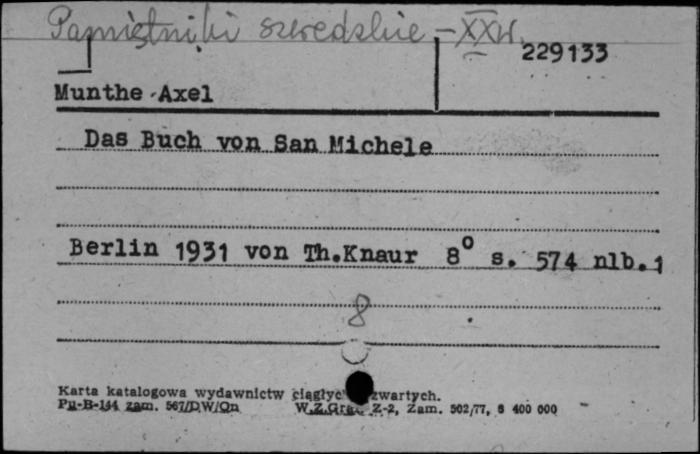 Pamiętniki szwedzkie - XXw.
229133
Munthe Axel
Das Buch von San Michele
Berlin 1931 von Th.Knaur 8° s. 574 nlb.1
8
Karta katalogowa wydawnictw ciągłyc zwartych.
Pu-B-144 zam. 567/D W/On W.Z.Graf. Z-2, Zam. 502/77, 8 400 000